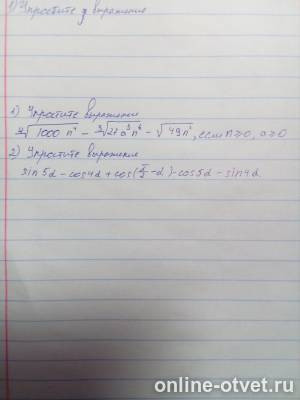 1) Упростите выражение
1) Упростите выражение
∜1000 n⁴ - ∛27 a³ n⁶ - √49 n², если n≥0, a≥0
2) Упростите выражение
sin 5α - cos 4α + cos(π/2 - α) - cos 5α - sin 4α
online-otvet.ru